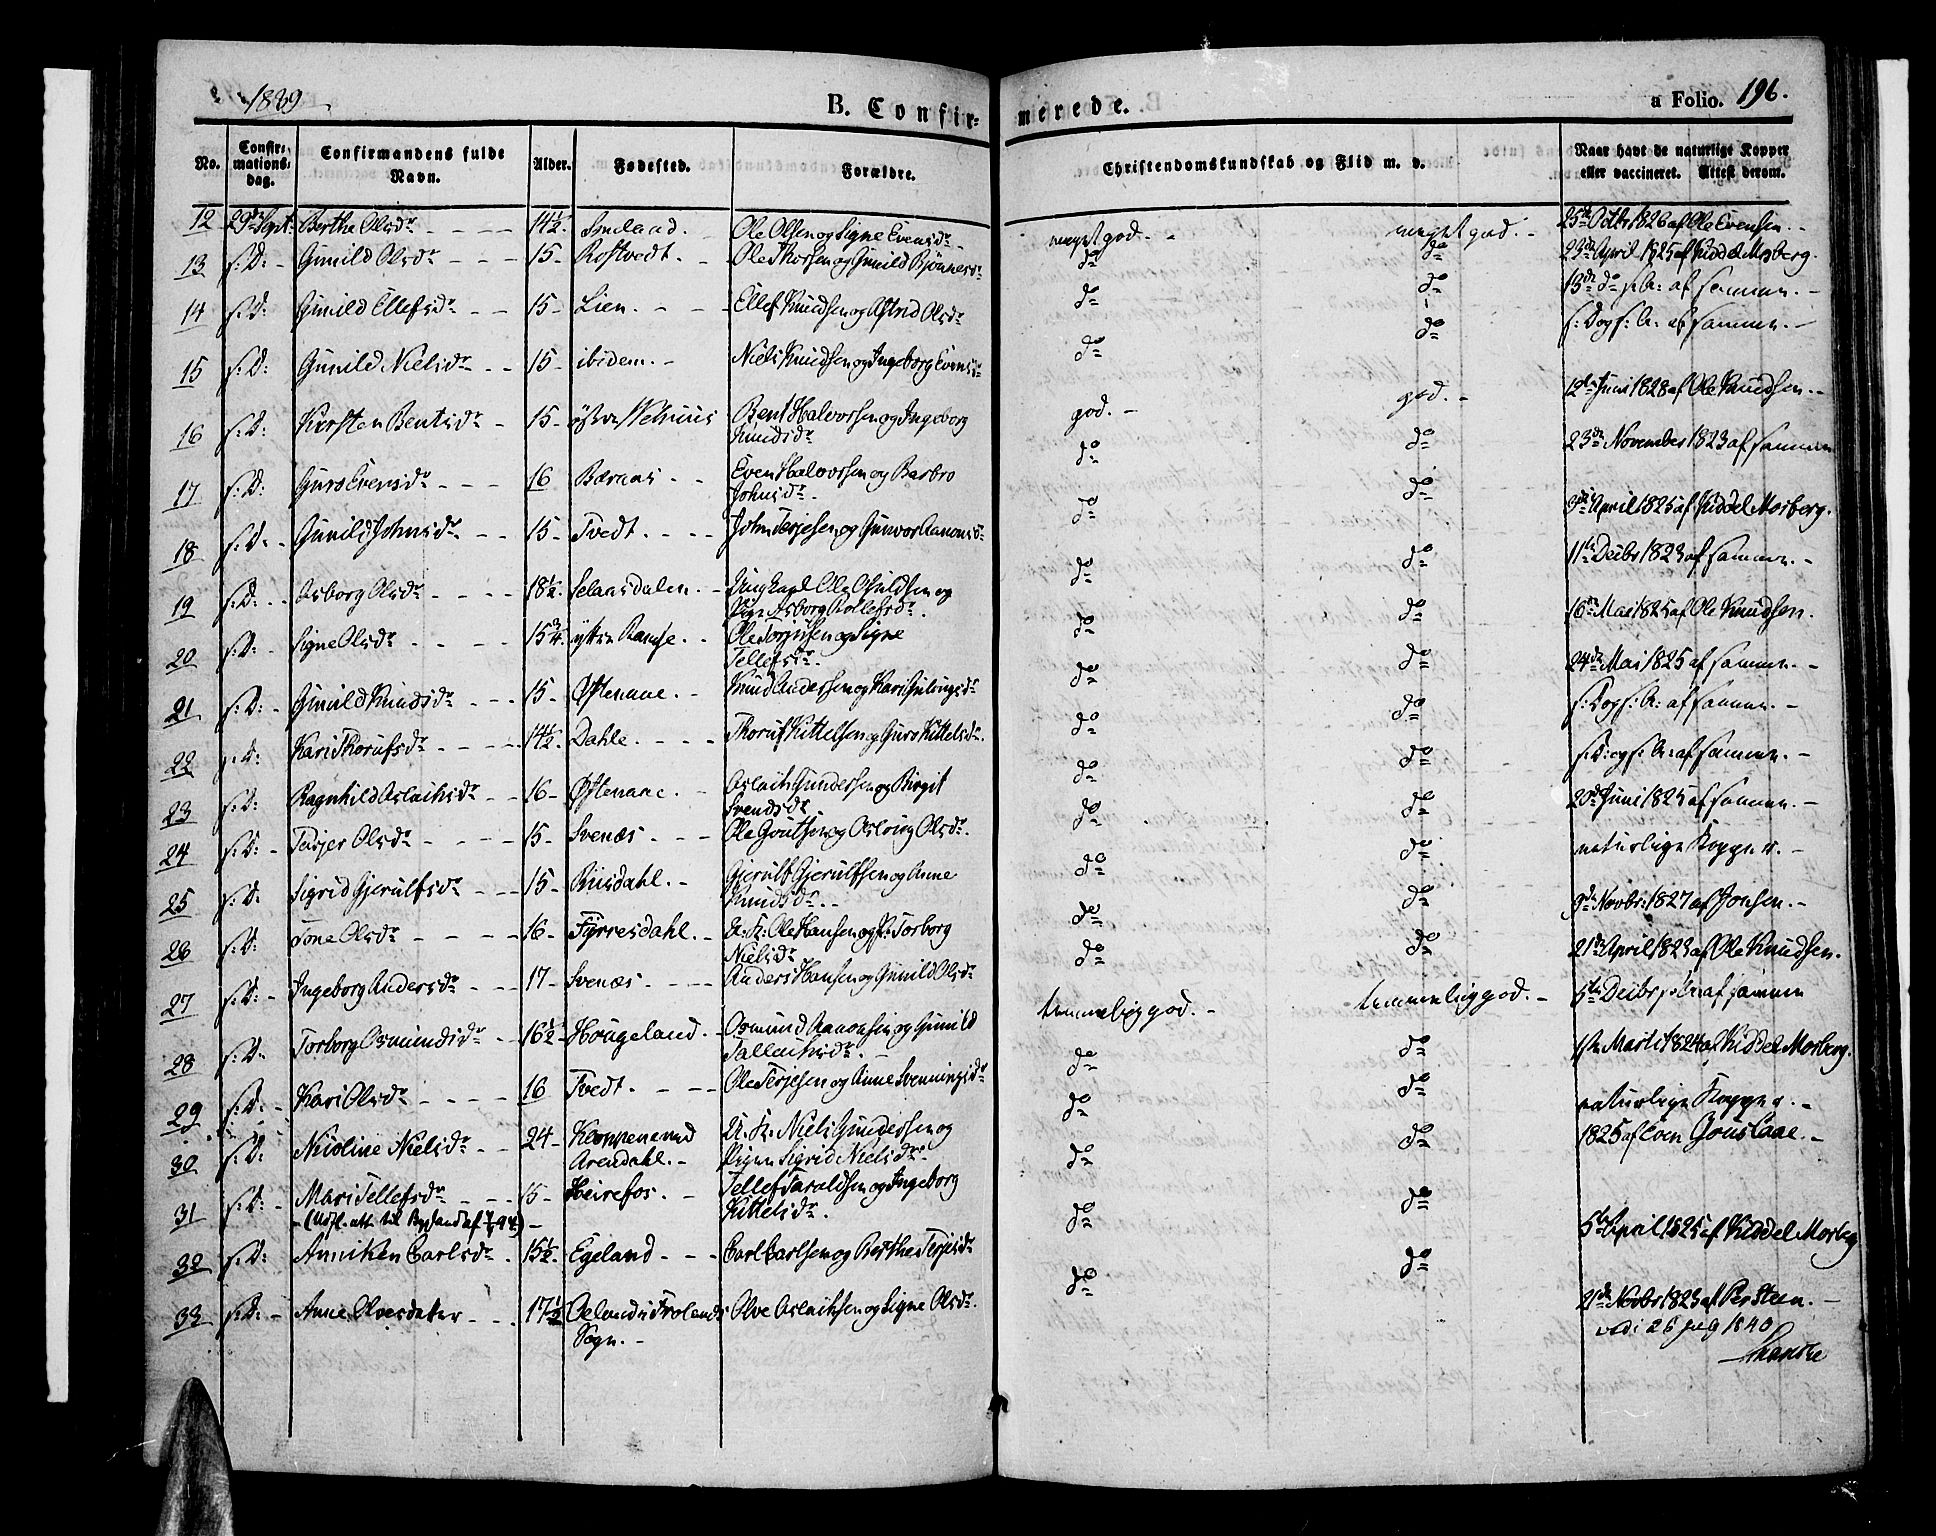 1839
B. Confir-
merede.
a Folio. 196.
No.
Confir-
mations-
dag.
Confirmandens fulde
Navn.
Alder.
Fødested.
Forældre.
Christendomskundskab og Flid m. v.
Naar havt de naturlige Kopper
eller vaccineret. Attest derom.
12 29de Sept. Berthe Olsdr 14½ Smeland. Ole Olsen og Signe Evensdr meget god. meget god. 25de Octbr 1826 af Ole Evensen
13 s: D: Gunild Olsdr 15 Rostvedt Ole Thorsen og Gunild Bjønnesdr do do 29de April 1825 af Kiddel Mosberg.
14 s: D: Gunild Ellefsdr 15 Lien. Ellef Knudsen og Astrid Olsdr do do 13de do s: A: af samme.
15 s: D: Gunild Nielsdr 15 ibidem. Niels Knudsen og Ingeborg Evensdr do do s: D og s: A: af samme.
16 s: D: Kirsten Bentsdr 15 østre Bent Halvorsen og Ingeborg
Knudsdr god. god. 12te Juni 1828 af Ole Knudsen.
17 s: D: Guro Evensdr 16 Even Halvorsen og Barbro
Johnsdr. do do 23de November 1823 af samme
18 s: D: Gunild Johnsdr 15 Tvedt. John Terjesen og Gunvor Aanonsdr do do April 1825 af Kiddel Mosberg.
19 s: D: Asborg Olsdr 18½ Selaasdalen. Ungkarl Ole og
Pige Asborg Rollefsdr. do do 11te Decbr 1823 af samme.
20 s: D: Signe Olsdr 15¾ ystre Ramse. Ole Torjusen og Signe
Tellefsdr. do do 16de Mai 1825 af Ole Knudsen.
21 s: D: Gunild Knudsdr 15 Øftenane. Knud Andersen og Kari do do 24de Mai 1825 af samme.
22 s: D: Kari Thorufsdr 14½ Dahle. Thoruf Kittelsen og Guro Kittelsdr. do do s: D og s: A: af samme.
23 s: D: Ragnhild Aslaksdr 16 Øftenane. Aslak Gundersen og Birgit
Svendsdr do do s: D: og s: A: af samme.
24 s: D: Terjer Olsdr 15 Svenæs. Ole Goutsen og Aslaug Olsdr. do do 20de Juni 1825 af samme.
25 s: D: Sigrid Gjerulfsdr 15 Riisdahl. Gjerulf Gjerulfsen og Anne
Knudsdr. do do naturlige Kopper.
26 s: D: Tone Olsdr 16 Fyrresdahl. U: K: Ole Hansen og P: Torborg
Nielsdr do do 9de Novbr: 1827 af Jonsen.
27 s: D: Ingeborg Andersdr 17 Svenæs. Anders Hansen og Gunild Olsdr do do 21de April 1823 af Ole Knudsen.
28 s: D: Torborg Osmundsdr 16½ Hougeland. Osmund Aanonsen og Gunild
Tallaksdr. temmelig god. temmelig god. 5te Decbr s: A: af samme
29 s: D: Kari Olsdr 16 Tvedt. Ole Terjesen og Anne Svenningsdr do do 1ste Marti 1824 af Kiddel Mosberg.
30 s: D: Nicoline Nielsdr 24 Kloppene ved
Arendahl. U: K: Niels Gundersen og
Pigen Sigrid Nielsdr. do do naturlige Kopper.
31 s: D: Mari Tellefsdr 15 Heirefos. Tellef Taraldsen og Ingeborg
Kittelsdr. do do 1825 af Even
(Udst. att. til Bygland af )
32 s: D: Anniken Carlsdr. 15½ Egeland Carl Carlsen og Berthe Terjesdr do do 5te April 1825 af Kiddel Mosberg
33 s: D: Anne Olvesdater 17½ Oeland i Frolands
Sogn. Olve Aslaksen og Signe Olsdr. do do 21de Novbr 1823 af Per Steen.
vedi 26 July 1840